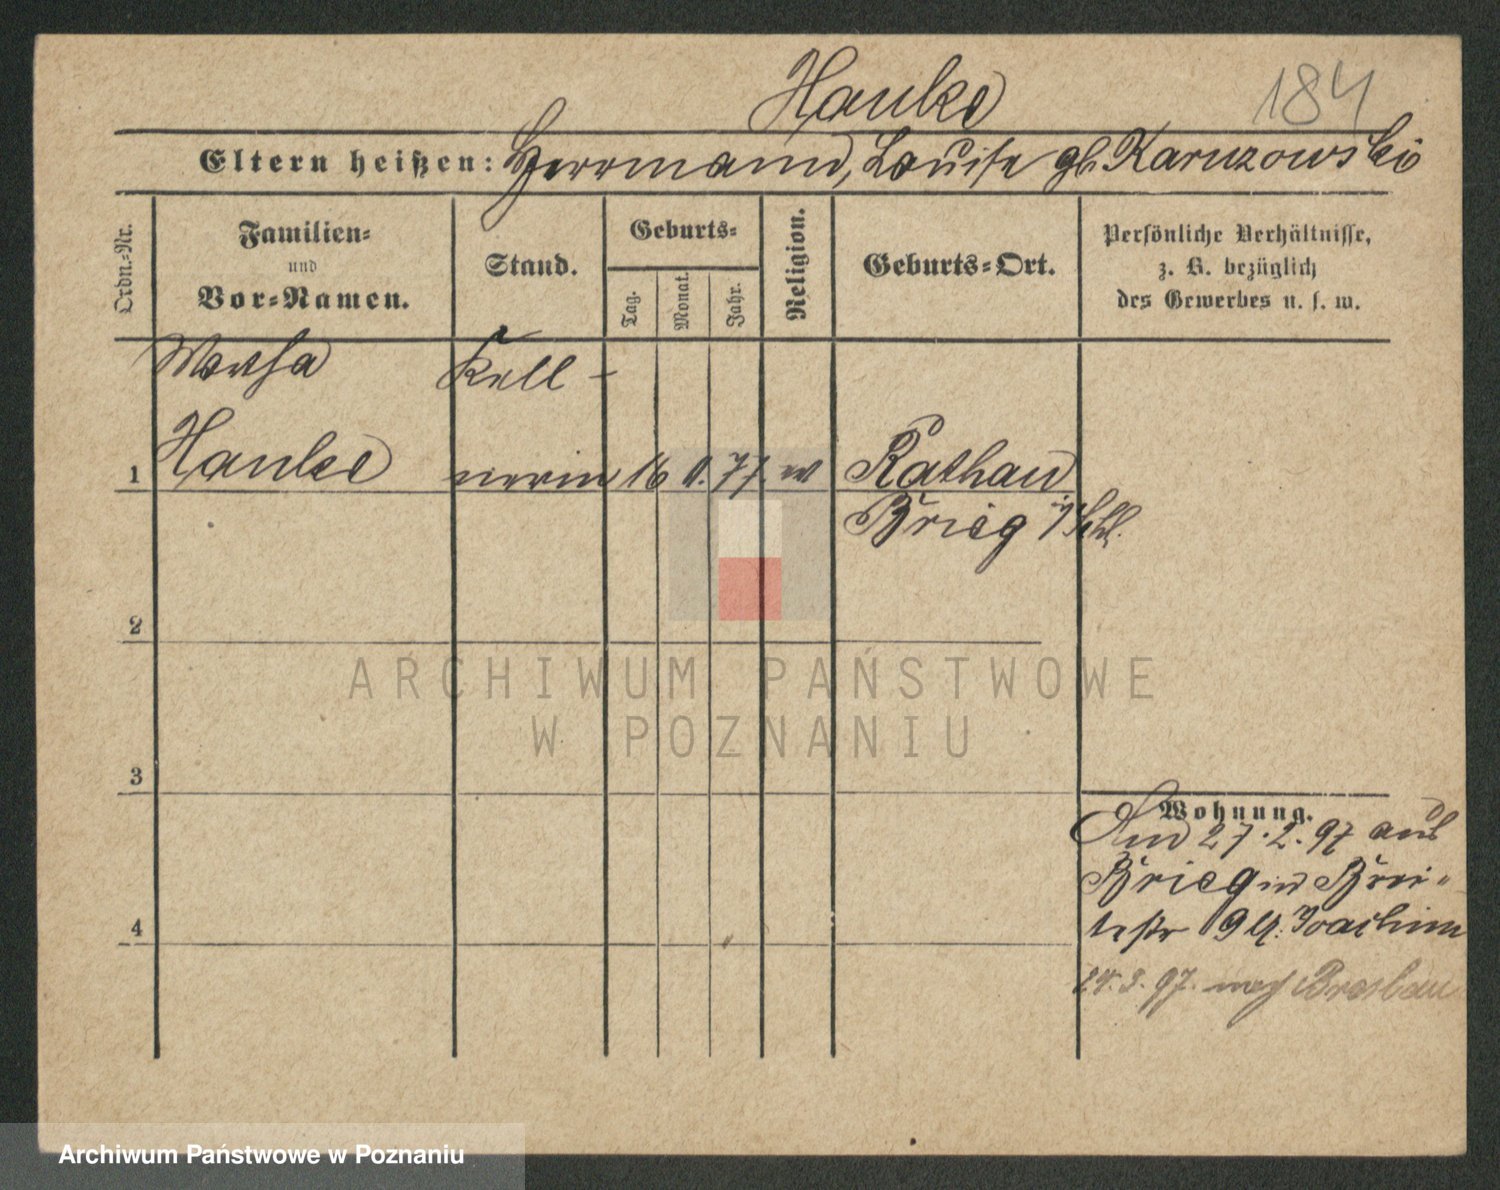 Hanke
184
Eltern heißen: Herrmann, Louise gb. Karuzowski
Ordn.-Nr.
Familien-
und
Vor-Namen.
Stand.
Geburts-
Tag.
Monat.
Jahr.
Religion.
Geburts-Ort.
Persönliche Verhältnisse,
z. B. bezüglich
des Gewerbes u. s. w.
Martha Kell-
1 Hanke nerin 16 77. Rathau
Brieg i/Schl.
2
ARCHIWUM PAŃSTWOWE
W POZNANIU
3
Wohnung.
27.2.97 aus
Brieg in Brei-
testr 19 Joachim
4
97. nach Breslau
Archiwum Państwowe w Poznaniu